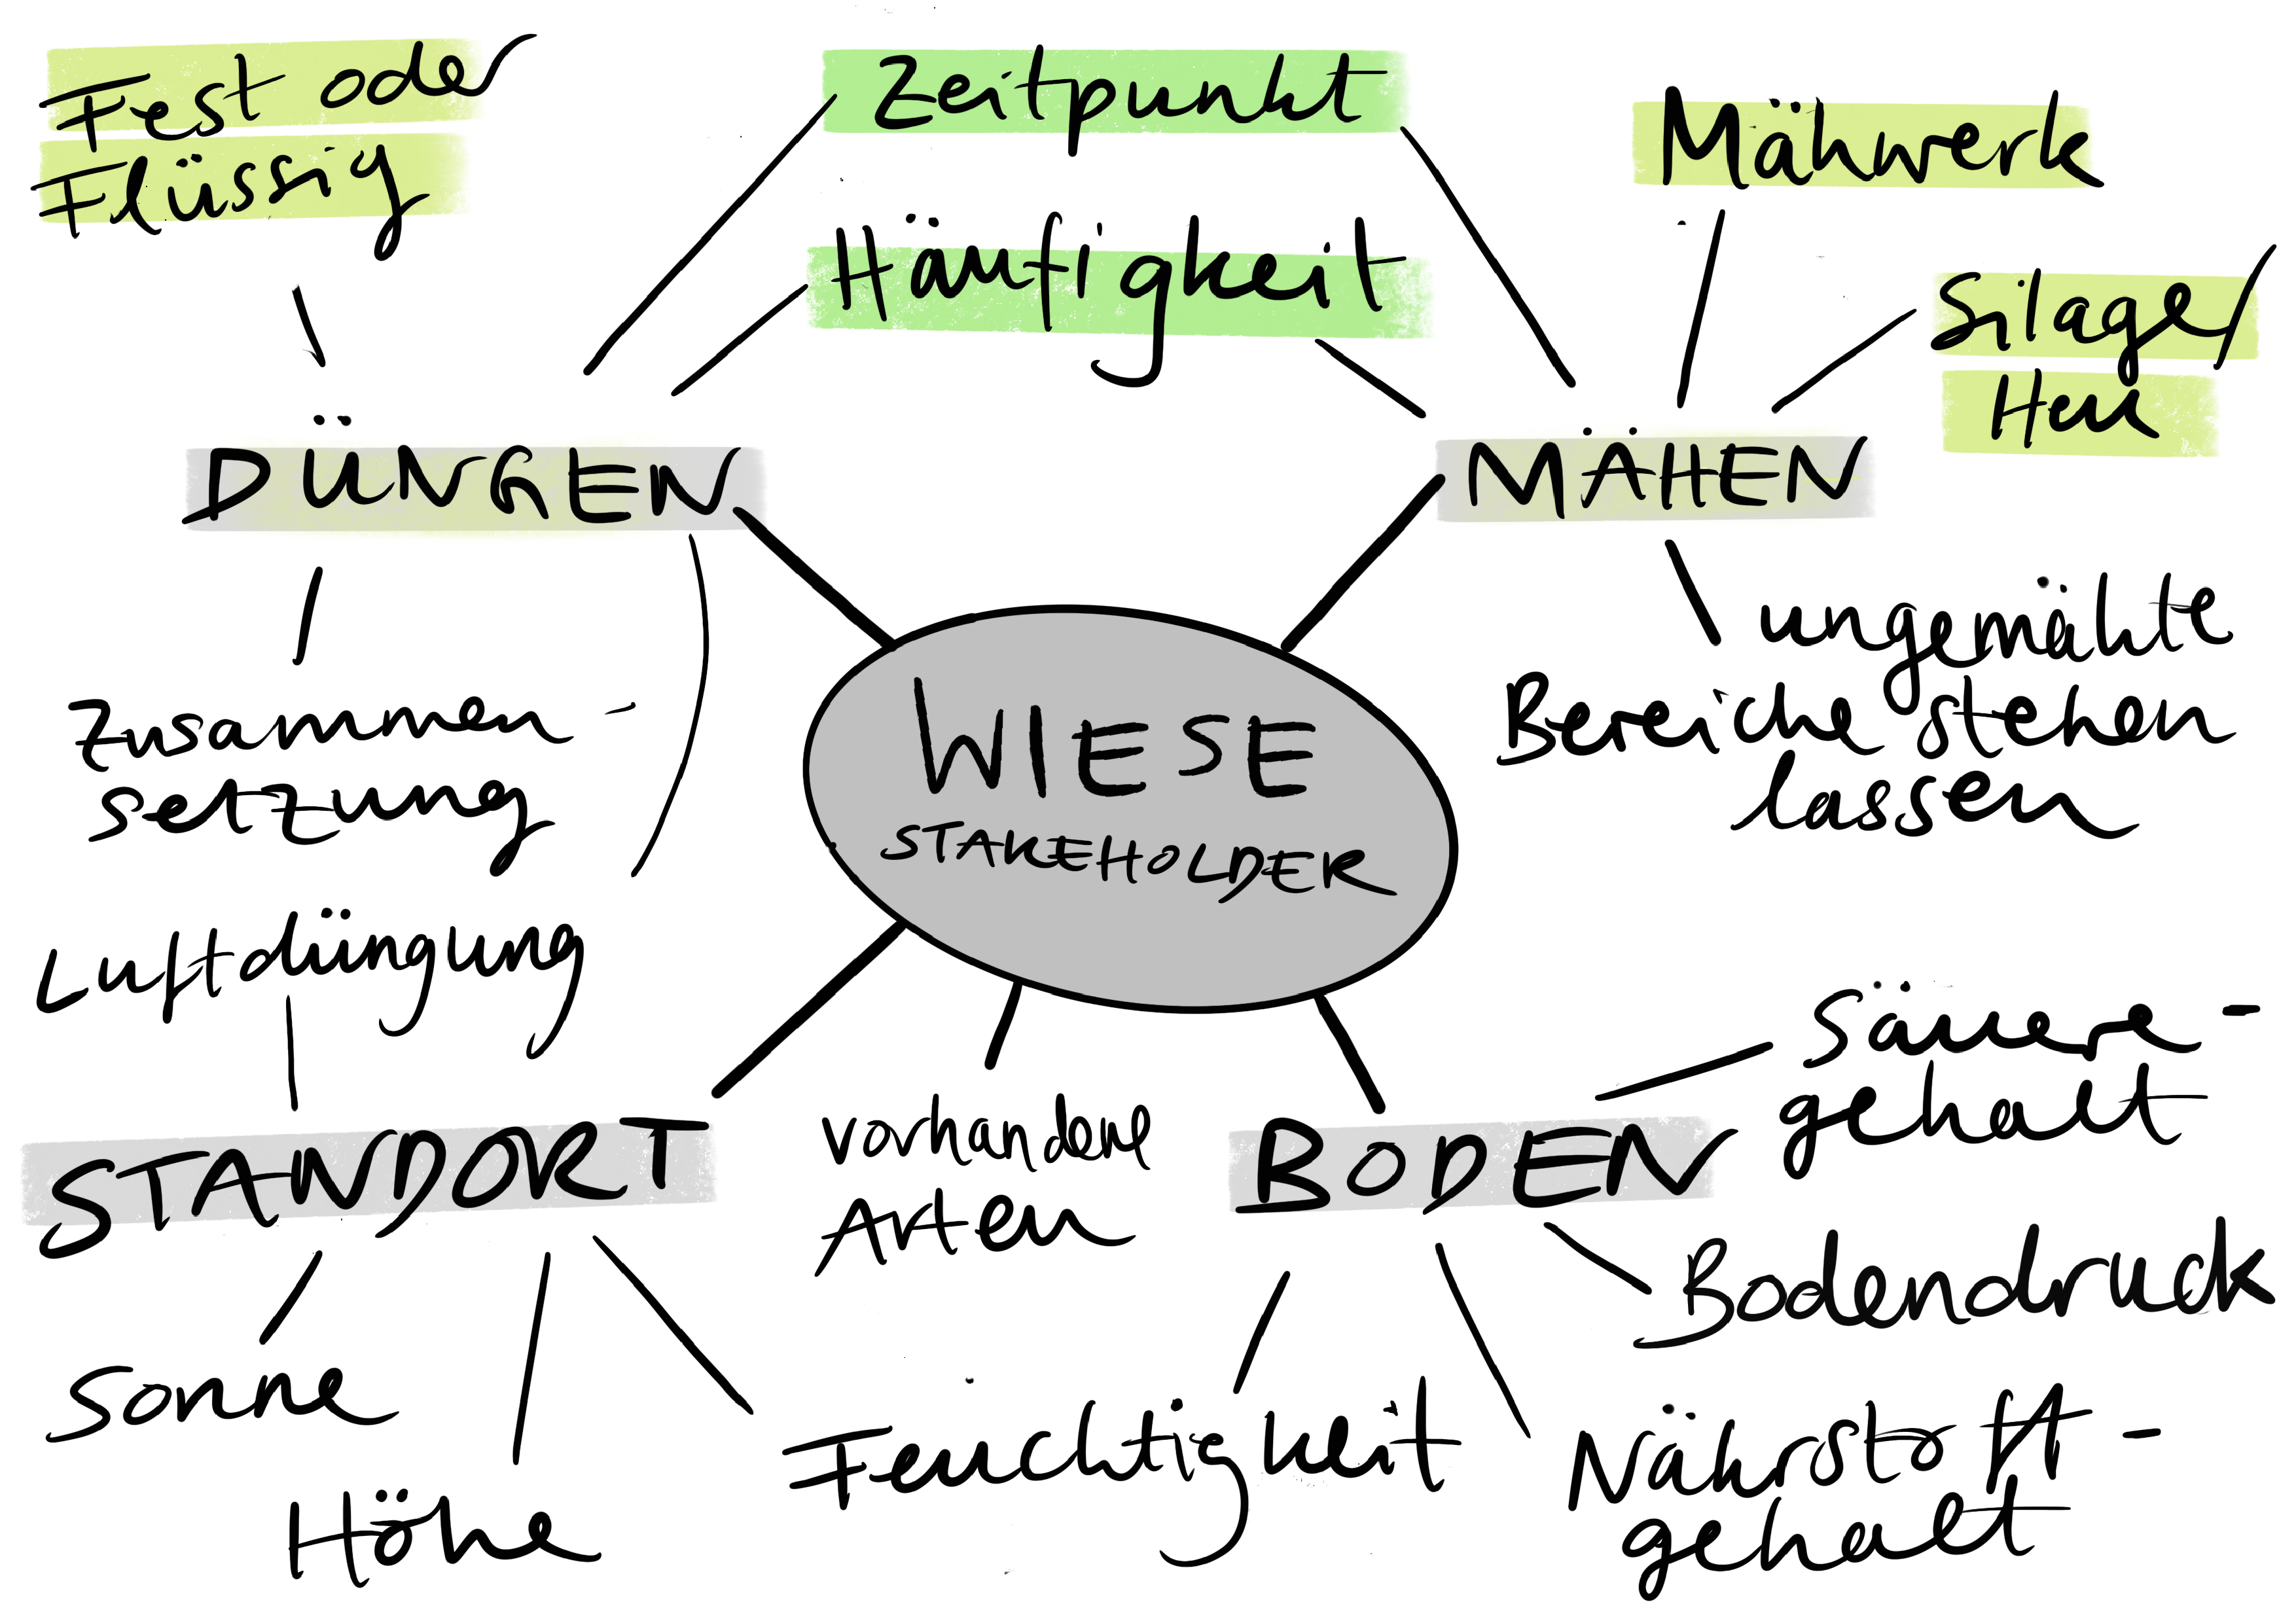 Fest oder
Flüssig
Zeitpunkt
Häufigkeit
Mähwerk
Silage/
Heu
DÜNGEN
MÄHEN
ungemähte
Bereiche stehen
lassen
Zusammen-
setzung
WIESE
STAKEHOLDER
Luftdüngung
Säuere-
gehalt
STANDORT
vorhandene
Arten
BODEN
Bodendruck
Sonne
Höhe
Feuchtigkeit
Nährstoff-
gehalt